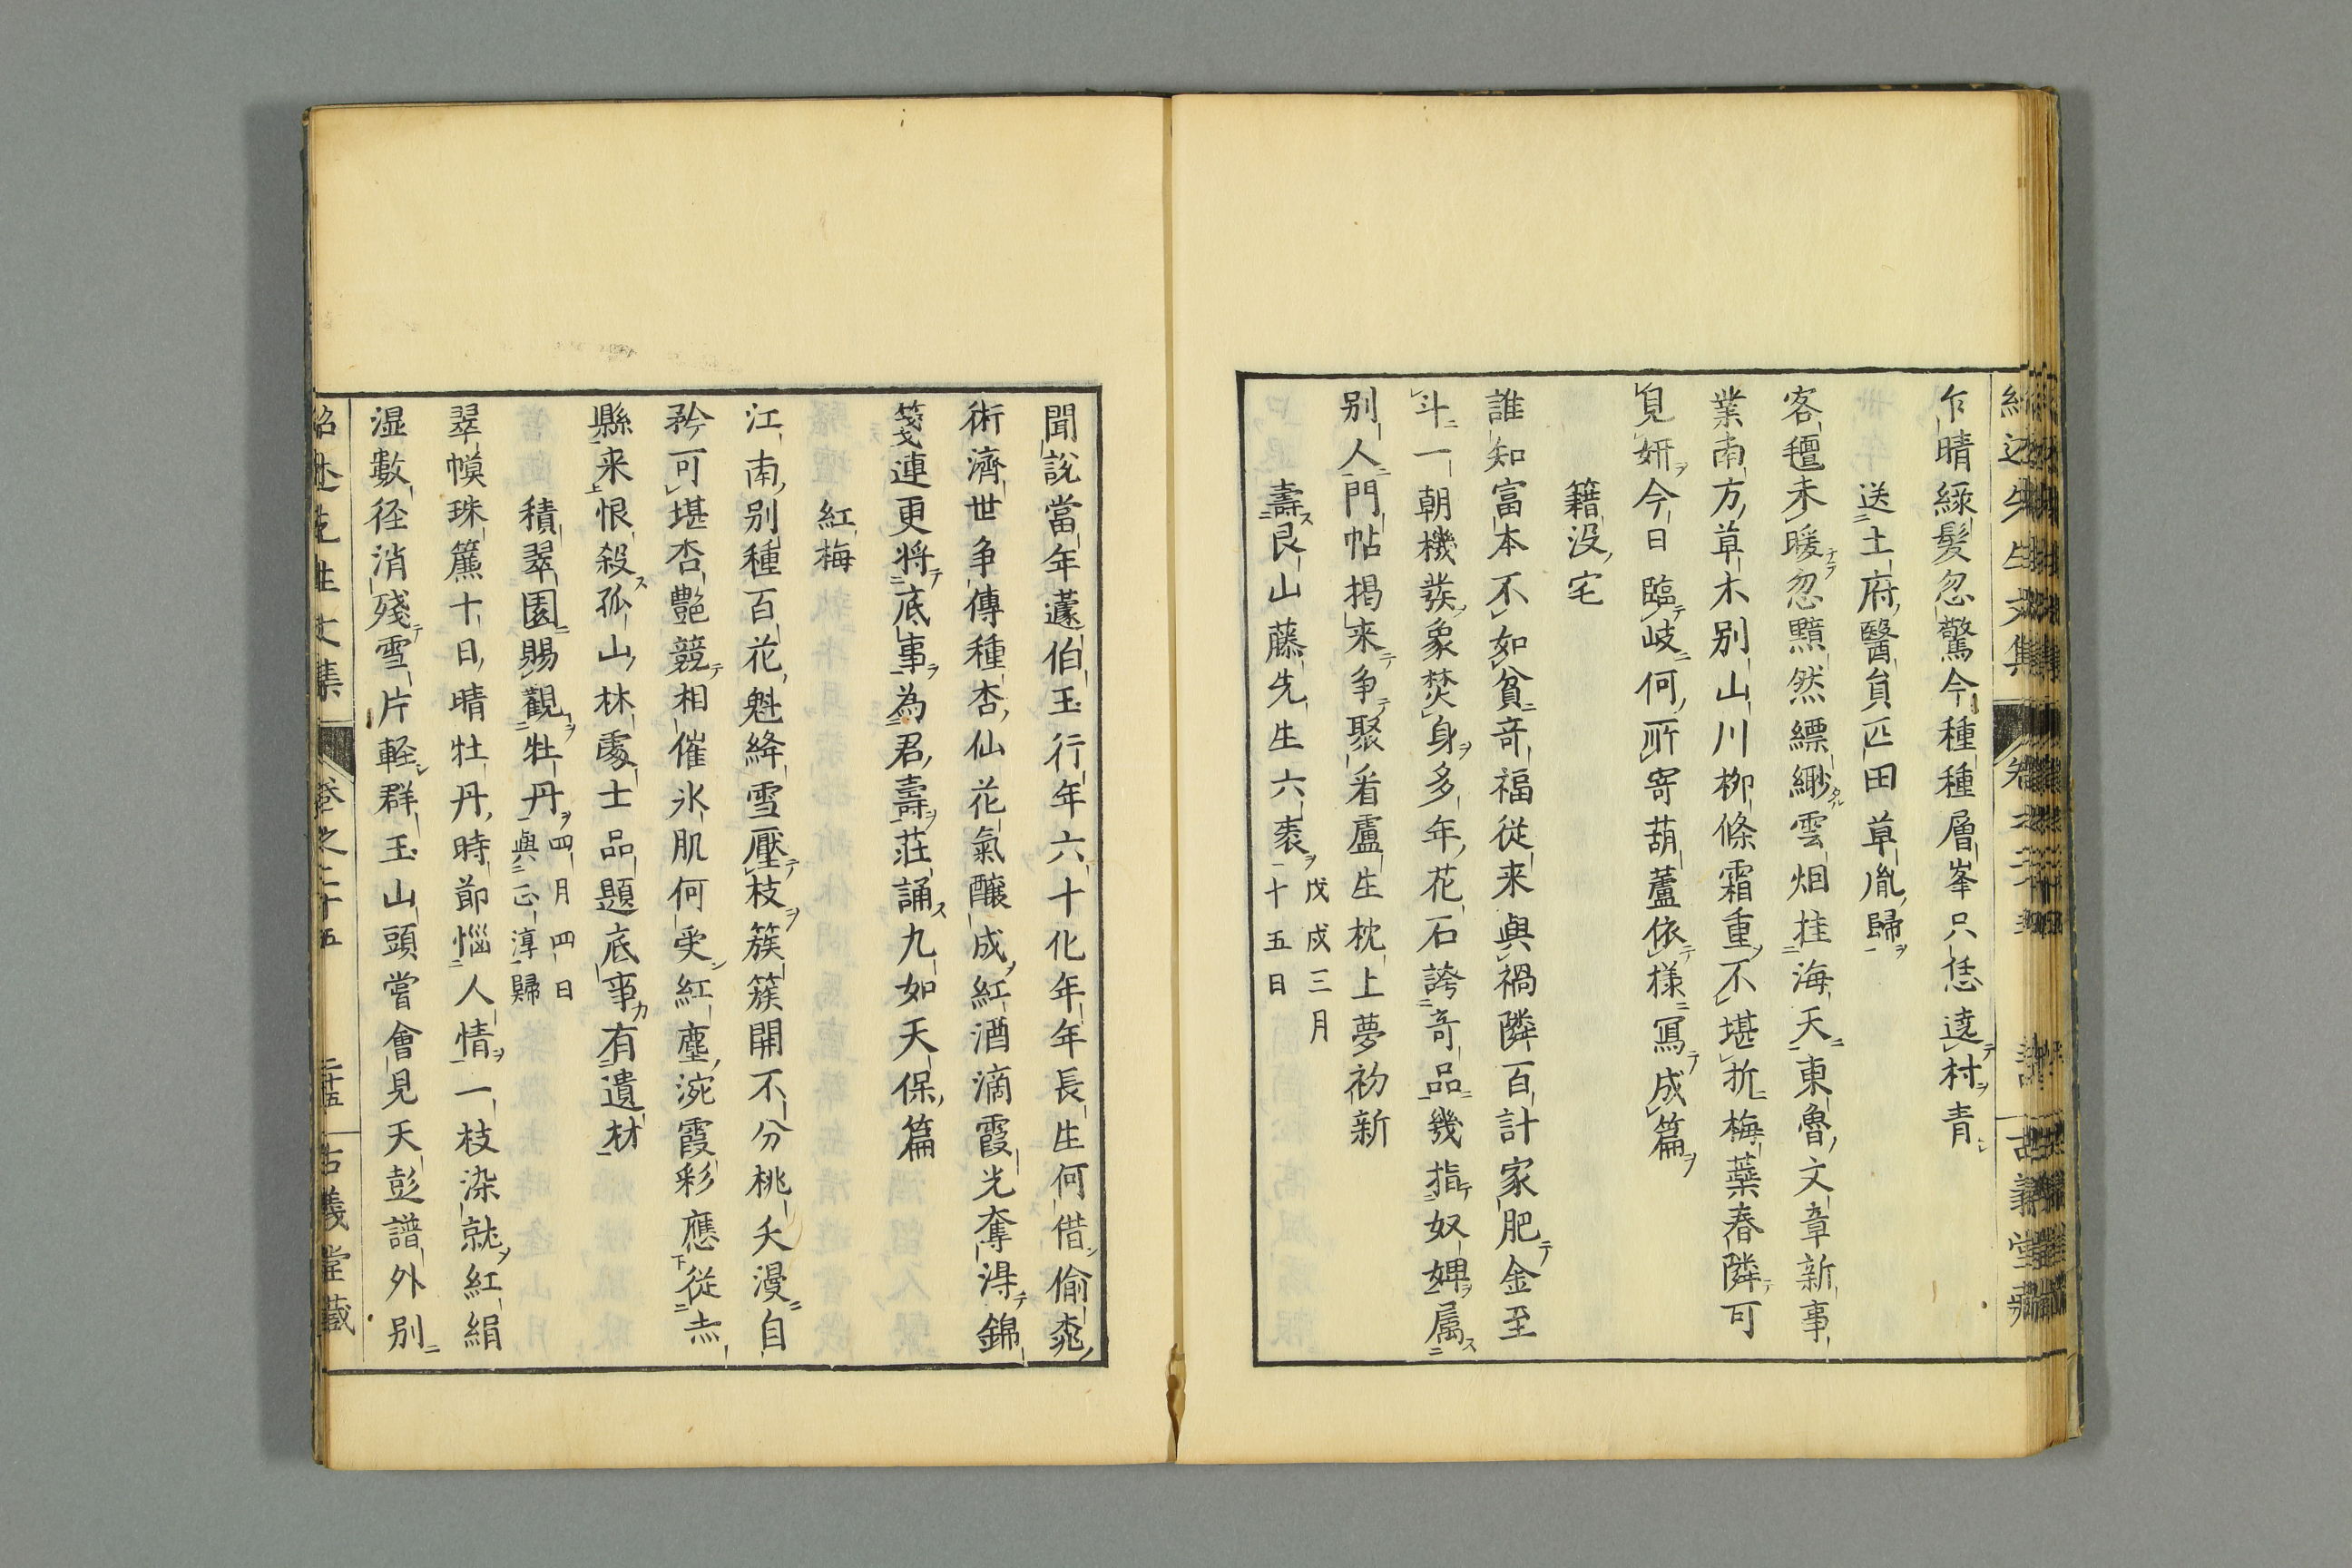 乍晴緑髪忽驚今種種層峯只恁遶村青
送土府醫貟匹田草胤歸
客氊未暖忽黯然縹緲雲烟挂海天東魯文章新事
業南方草木别山川柳條霜重不堪折梅蘂春隣可
見妍今日臨岐何所寄葫蘆依様冩成篇
籍没宅
誰知富本不如貧竒福従来與禍隣百計家肥金至
斗一朝機發象焚身多年花石誇竒品幾指奴婢属
别人門帖掲来争聚看盧生枕上夢初新
壽艮山藤先生六袠戊戌三月
十五日
聞説當年蘧伯玉行年六十化年年長生何借偷桃
術濟世争傳種杏仙花氣釀成紅酒滴霞光奪得錦
箋連更将底事為君壽荘誦九如天保篇
紅梅
江南别種百花魁絳雪壓枝簇簇開不分桃夭漫自
矜可堪杏艶競相催氷肌何受紅塵涴霞彩應従赤
縣来恨殺孤山林處士品題底事有遺材
積翠園賜觀牡丹四月四日
與正淳歸
翠幙珠簾十日晴牡丹時節惱人情一枝染就紅絹
湿數径消殘雪片軽群玉山頭嘗會見天彭譜外别
紹述先生文集 卷之二十五 二十五 古義堂藏